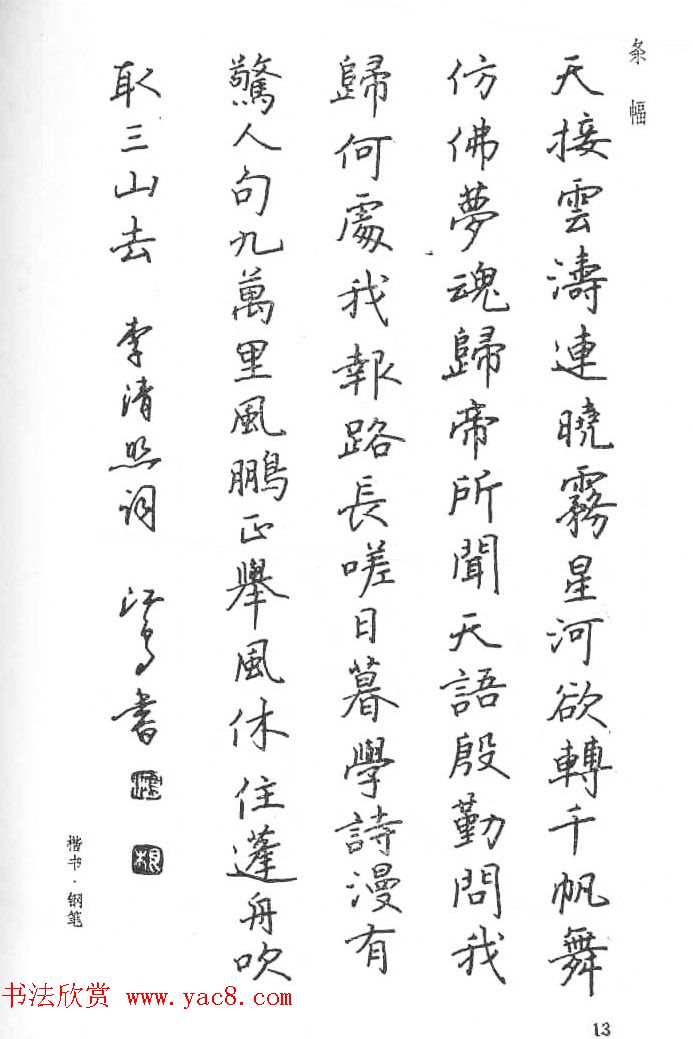 条幅
天接雲濤連曉霧星河欲轉千帆舞
仿佛夢魂歸帝所聞天語殷勤問我
歸何處我報路長嗟日暮學詩漫有
驚人句九萬里風鵬正舉風休住蓬舟吹
取三山去 李清照詞 江 書
楷书·钢笔
书法欣赏 www.yac8.com
13